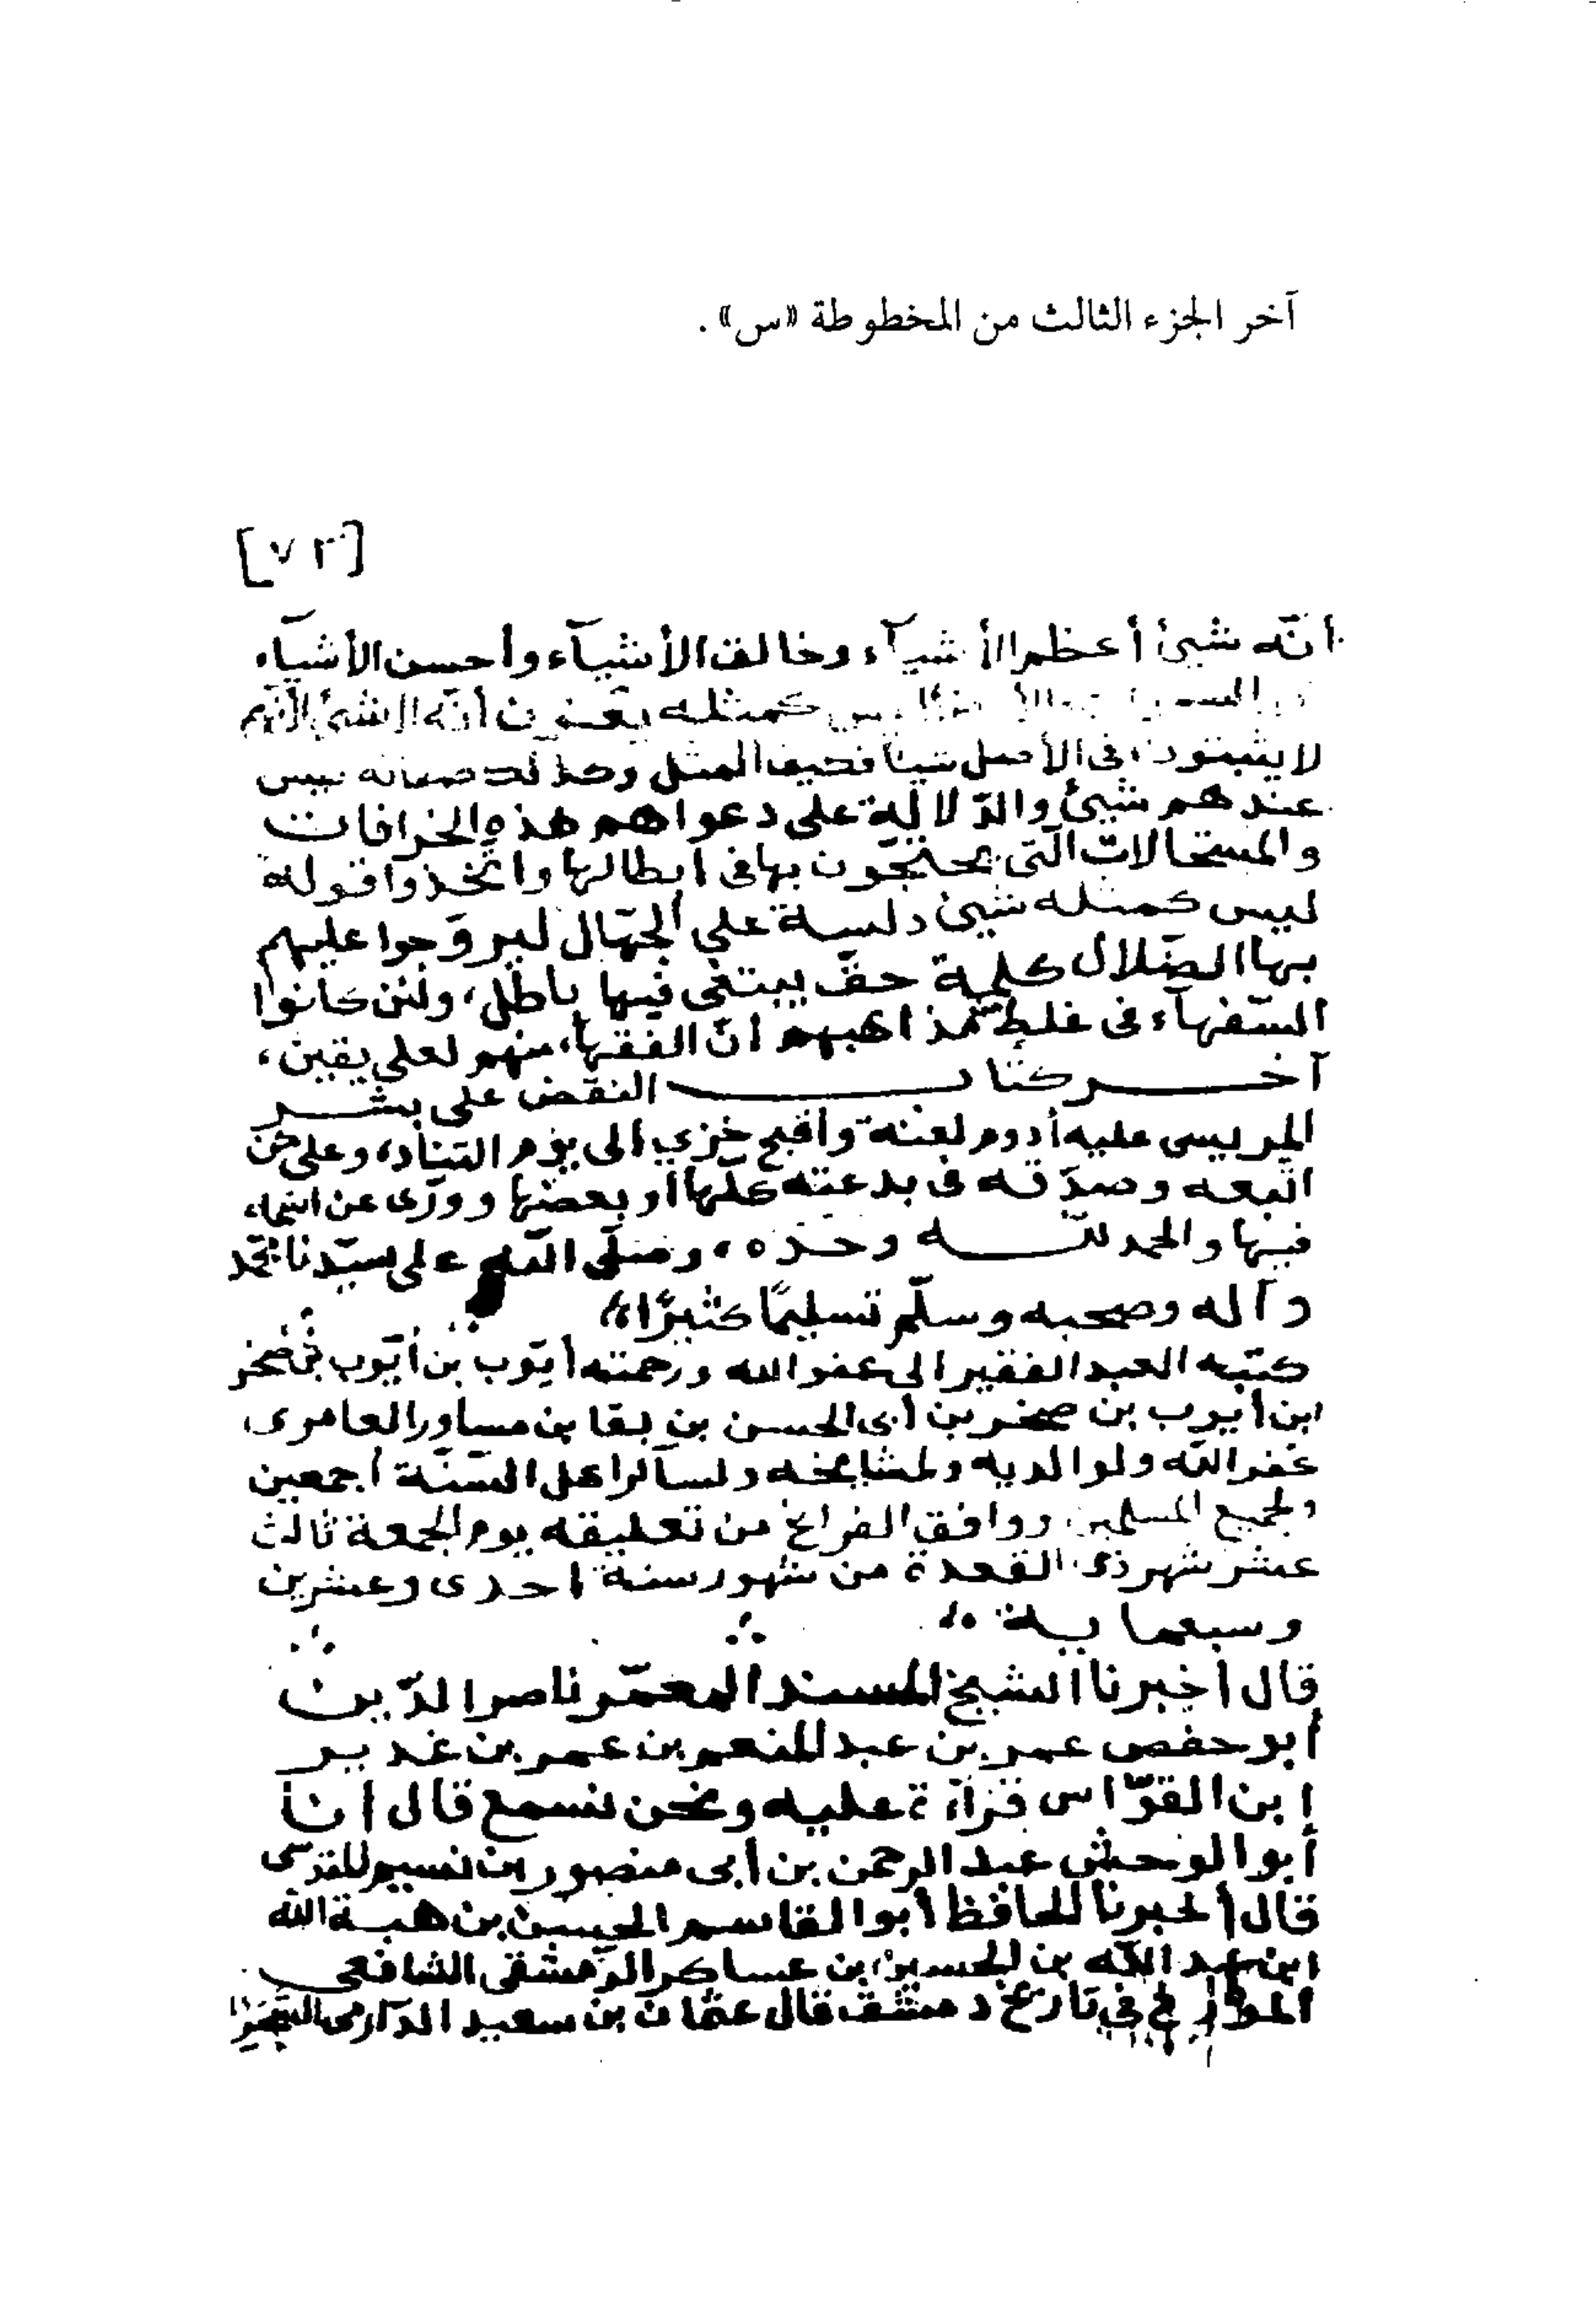 آخر الجزء الثالث من المخطوطة «س» .
[٧٢]
أنّه شيئ أعظم الأشيآء وخالق الأشيآء وأحسن الأشيآء
كمثله أنّه لا شئ لأنّهم
لا يثبتون فى الأصل شيئا فكيف المثل وكذلك صفاته ليس
عندهم شيئ والدّلالة على دعواهم هذه الخرافات
والمستحالات الّتى يحتجّون بها فى ابطالها واتّخذوا قوله
ليس كمثله شيئ دلسة على الجهّال ليروّجوا عليهم
بها الضّلال كلمة حقّ يبتغى فيها باطل، ولئن كانوا
السّفهآء فى غلط من مذاهبهم انّ الفقهآء منهم لعلى يقين،
آخر كتاب النقض على بشر
المريسى عليه أدوم لعنة وأقبح خزي الى يوم التّناد، وعلى من
اتّبعه وصدّقه فى بدعته كلّها أو بعضها وورّى عن
فيها والحمد للّه وحده، وصلّى اللّه على سيّدنا محمّد
وآله وصحبه وسلّم تسليمًا كثيرًا،
كتبه العبد الفقير الى عفو الله ورحمته أيّوب بن أيّوب بن صخر
ابن أيوب بن صخر بن أبى الحسن بن بقا بن مساور العامرى
غفر اللّه ولوالديه ولمشايخه ولسآئر اهل السّنّة أجمعين
ولجميع المسلمين ووافق الفراغ من تعليقه يوم الجمعة ثالث
عشر شهر ذى القعدة من شهور سنة احدى وعشرين
وسبعماية
قال اخبرنا الشيخ المسند المعمّر ناصر الدّين
أبو حفص عمر بن عبد المنعم بن عمر بن غدير
ابن القوّاس قرآءة عليه ونحن نسمع قال انا
أبو الوحش عبد الرحمن بن أبى منصور بن نسيم
قال أخبرنا الحافظ أبو القاسم بن هبة اللّه
ابن عبد اللّه بن الحسين بن عساكر الدّمشقى الشافعى
فى تاريخ دمشق قال عثمان بن سعيد الدّارمى